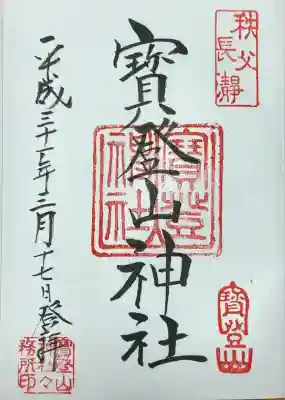 秩父
長瀞
寶登山神社
寶登山
神社
寶登山
平成三十一年三月十七日登拝
寶登山
神社々
務所印